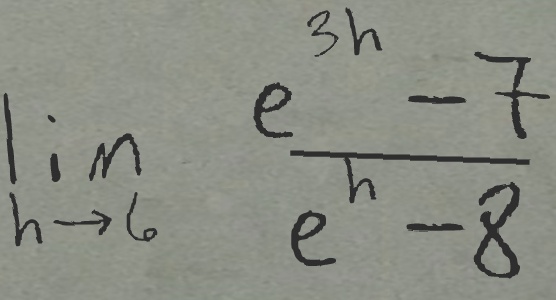 lim h→6 \frac{e^{3h} - 7}{e^{h} - 8}